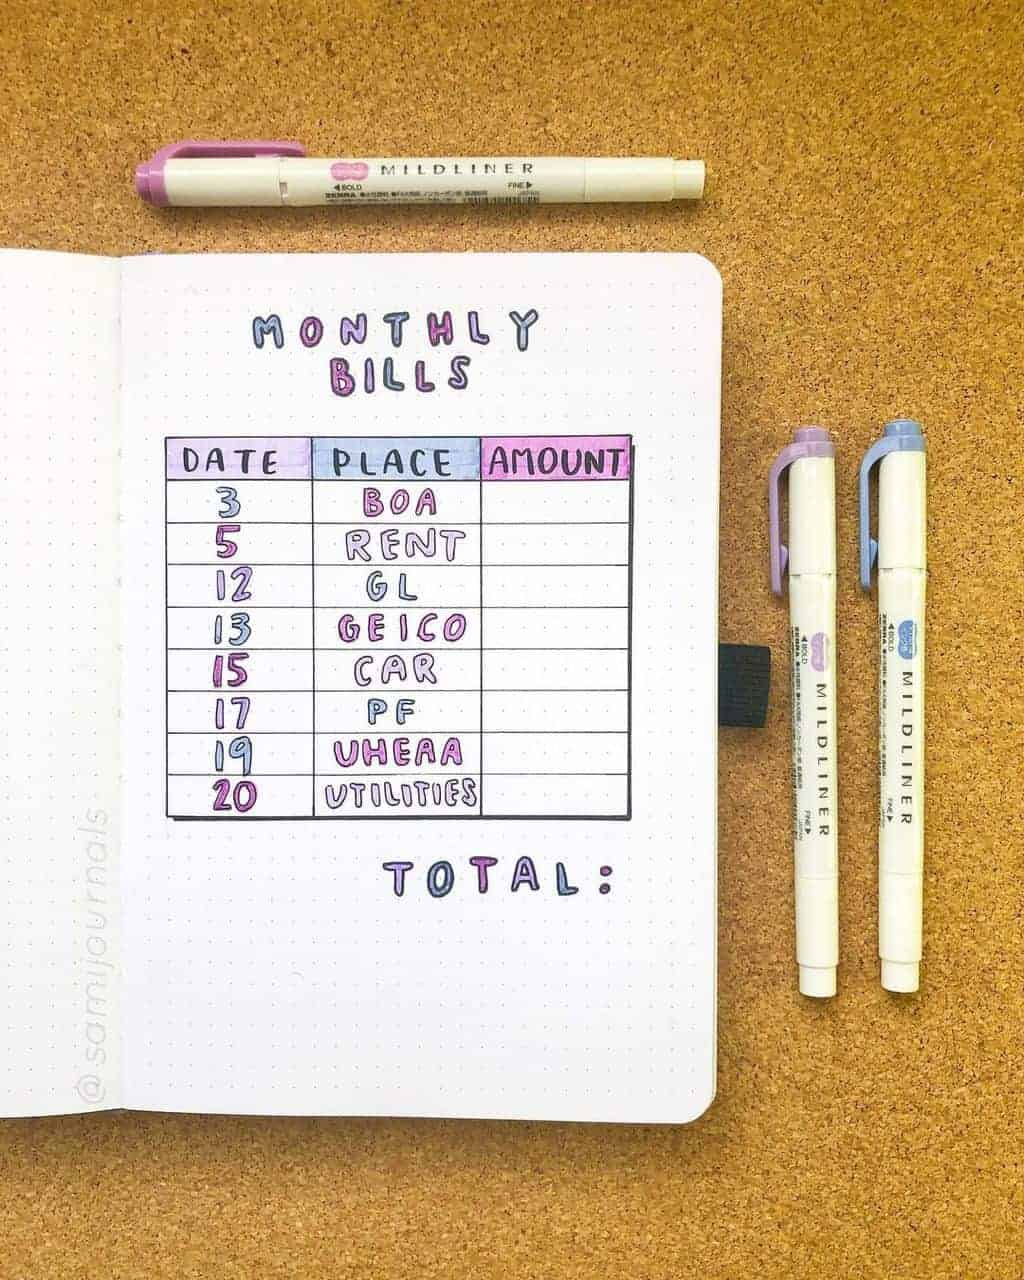 MILDLINER
◀BOLD FINE▶
JAPAN
MONTHLY
BILLS
DATE PLACE AMOUNT
3 BOA
5 RENT
12 GL
13 GEICO
15 CAR
17 PF
19 UHEAA
20 UTILITIES
TOTAL:
@samijournals
◀BOLD MILDLINER FINE▶
ZEBRA JAPAN
◀BOLD MILDLINER FINE▶
ZEBRA JAPAN